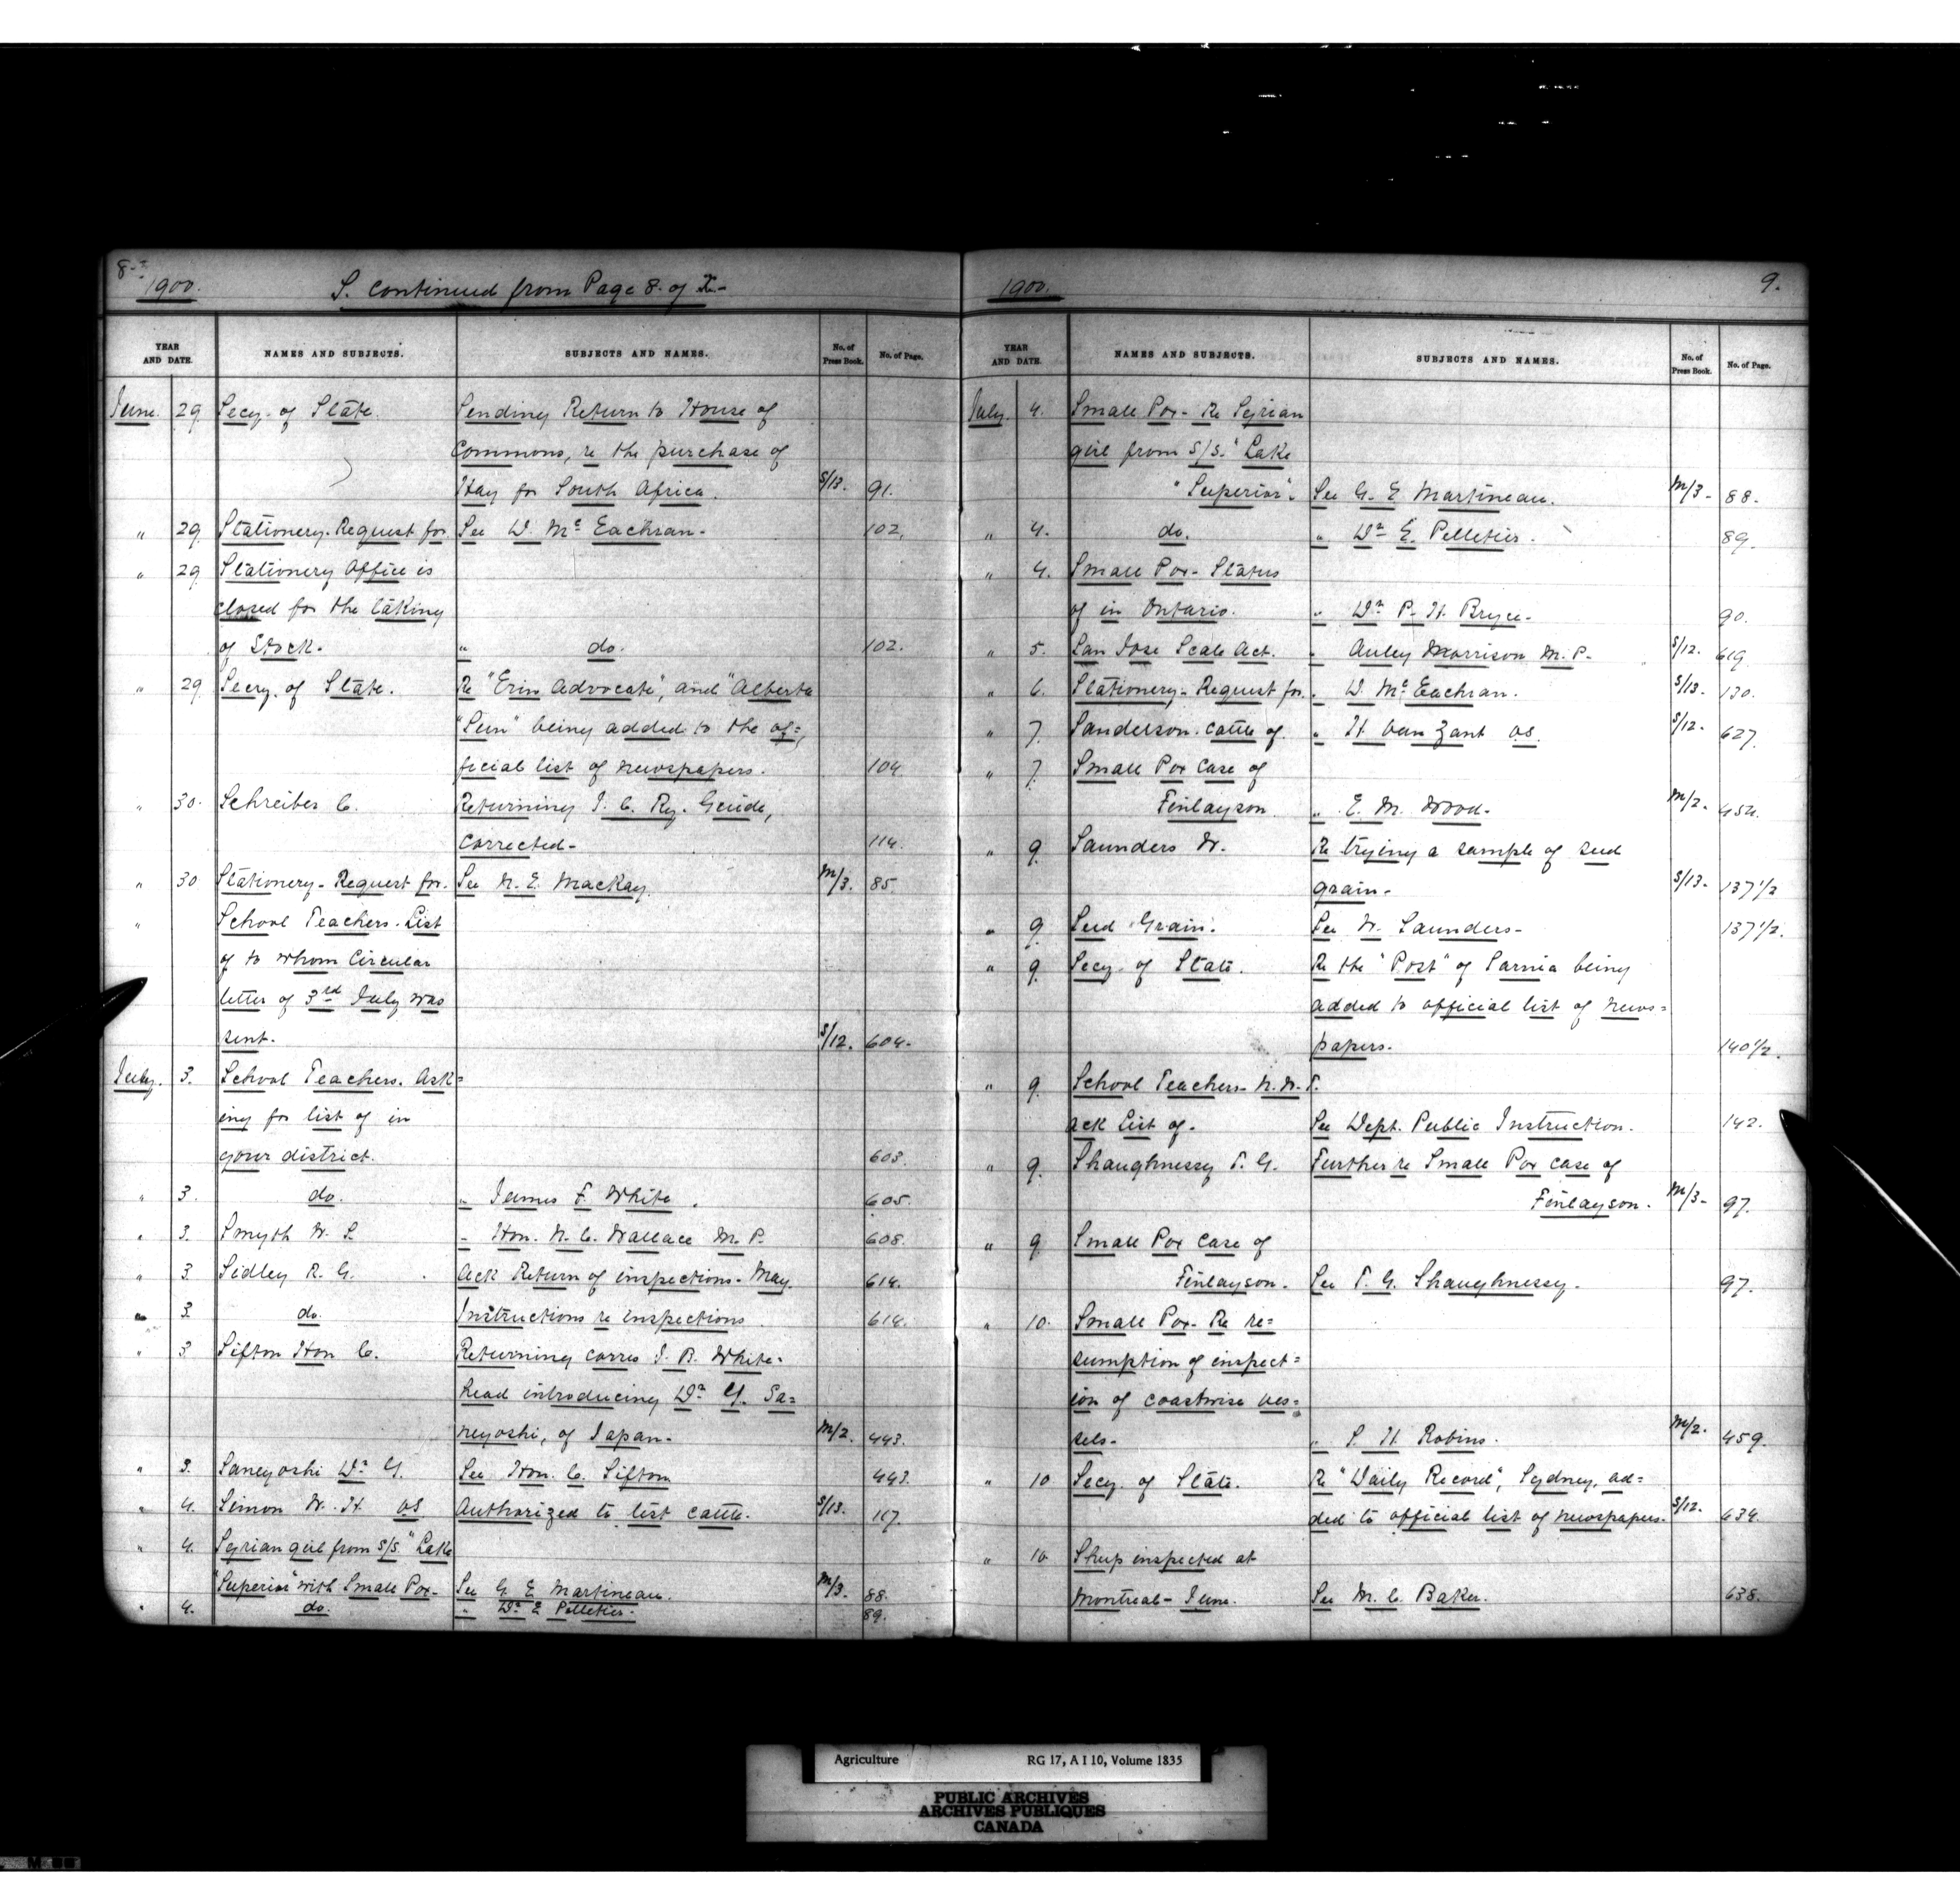 8.
1900. S. continued from Page 8. of
YEAR AND DATE. NAMES AND SUBJECTS. SUBJECTS AND NAMES. No. of Press Book. No. of Page.
June. 29 Secy. of State. Sending Return to House of
Commons, re the purchase of
Hay for South Africa. S/13. 91.
" 29 Stationery. Request for See D. McEachran. 102.
" 29 Stationery Office is
closed for the taking
of Stock. " do. 102.
" 29 Secry. of State. Re "Erin Advocate", and "Alberta
"Sun" being added to the of=
ficial list of newspapers. 104.
" 30. Schreiber C. Returning I. C. Ry. Guide,
corrected- 114.
" 30 Stationery- Request for. See N. E. MacKay. M/3. 85.
" School Teachers. List
of to whom Circular
letter of 3rd July was
sent. S/12. 604.
July. 3. School Teachers. Ask=
ing for list of in
your district. 603.
" 3. do. " James F. White. 605.
" 3. Smyth W. S. " Hon. N. C. Wallace M. P. 608.
" 3. Sidley R. G. Ack Return of inspections- May. 614.
" 3. do. Instructions re inspections. 614.
" 3. Sifton Hon C. Returning corres J. B. White-
head introducing Dr. Y. Sa=
neyoshi, of Japan- M/2. 443.
" 3. Saneyoshi Dr. Y. See Hon. C. Sifton 443.
" 4. Simon W. H. VS Authorized to list cattle. S/13. 117.
" 4. Syrian girl from S/S. "Lake
"Superior" with Small Pox- See G. E Martineau. M/3. 88.
" 4. do. " Dr. E Pelletier. 89.
1900. 9.
YEAR AND DATE. NAMES AND SUBJECTS. SUBJECTS AND NAMES. No. of Press Book. No. of Page.
July. 4. Small Pox- Re Syrian
girl from S/S. "Lake
"Superior". See G. E Martineau. M/3- 88.
" 4. do. " Dr. E. Pelletier. 89.
" 4. Small Pox- Status
of in Ontario. " Dr. P. H. Bryce. 90.
" 5. San Jose Scale Act. " Auley Morrison M. P. S/12. 619.
" 6. Stationery- Request for. " D. McEachran. S/13. 130.
" 7. Sanderson. cattle of. " H. Van Zant VS. S/12- 627.
" 7. Small Pox case of
Finlayson. " E. M. Wood. M/2- 454.
" 9. Saunders W. Re trying a sample of seed
grain- S/13- 137 1/2
" 9. Seed Grain. See W. Saunders- 137 1/2.
" 9. Secy. of State. Re the "Post" of Sarnia being
added to official list of news=
papers. 140 1/2.
" 9. School Teachers- N. W. T.
ack list of. See Dept. Public Instruction. 142.
" 9. Shaughnessy T. G. Further re Small Pox case of
Finlayson. M/3- 97.
" 9. Small Pox case of
Finlayson. See T. G. Shaughnessy. 97.
" 10. Small Pox- Re re=
sumption of inspect=
ion of coastwise ves=
sels- " S. H. Robins. M/2. 459.
" 10 Secy. of State. Re "Daily Record", Sydney, ad=
ded to official list of newspapers. S/12. 634.
" 10. Sheep inspected at
Montreal- June. See M. C. Baker. 638.
Agriculture RG 17, A I 10, Volume 1835
PUBLIC ARCHIVES
ARCHIVES PUBLIQUES
CANADA